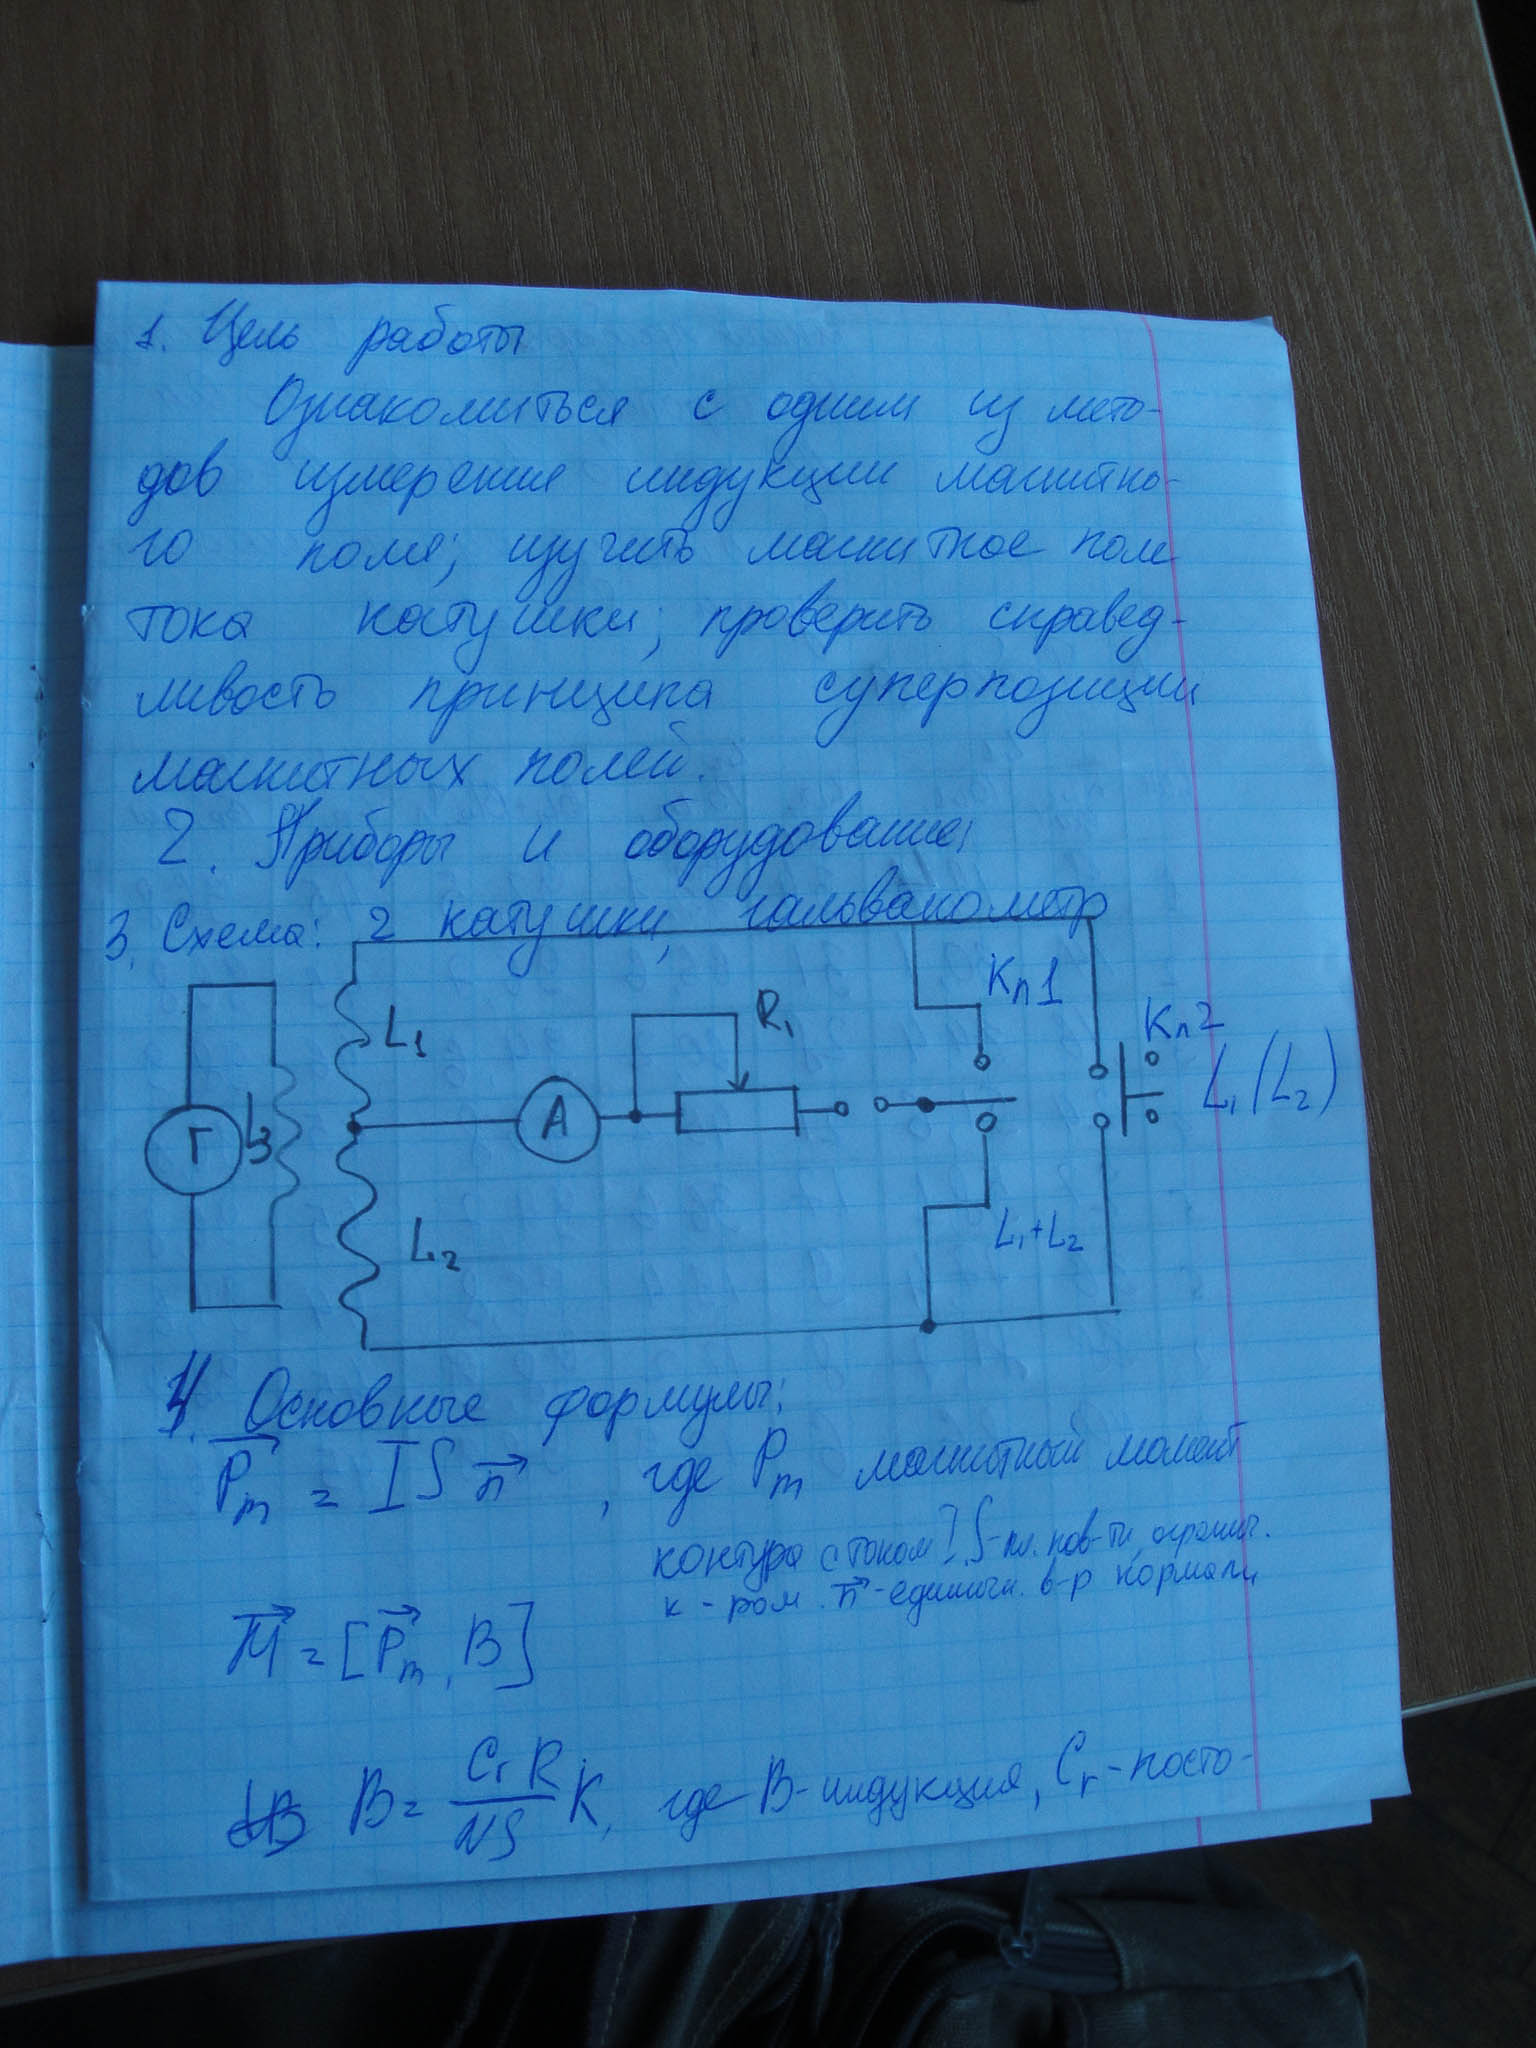 1. Цель работы
Ознакомиться с одним из мето-
дов измерения индукции магнитно-
го поля; изучить магнитное поле
тока катушки; проверить справед-
ливость принципа суперпозиции
магнитных полей.
2. Приборы и оборудование:
2 катушки, гальванометр
3. Схема:
Кп1
R1
Кп2
L1
L1 (L2)
A
Г
L3
L1+L2
L2
4. Основные формулы:
Pm = I S n, где Pm магнитный момент
контура с током I, S-пл. пов-ти, огранич.
к-ром. n-единичн. в-р нормали
M = [Pm, B]
B = CrR/NS K, где B-индукция, Cr-посто-